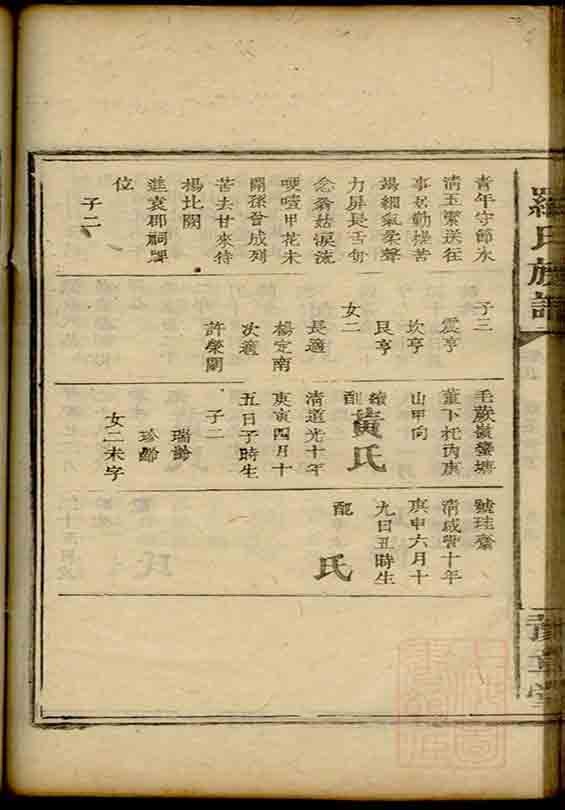 羅氏族譜
青年守節冰
清玉潔送往
事居勤操苦
場細氣柔聲
力屏長舌每
念翁姑淚流
哽噎甲花未
開孫曾成列
苦去甘來待
楊北闕
進袁郡祠牌
位
子二
子三
震亨
坎亨
艮亨
女二
長適
楊定南
次適
許榮闈
毛蕨嶺
董下杔丙庚
山甲向
續配黃氏
清道光十年
庚寅四月十
五日子時生
子二
瑞齡
珍齡
女二未字
號珪齋
清咸豐十年
庚申六月十
九日丑時生
配 氏
豫章堂